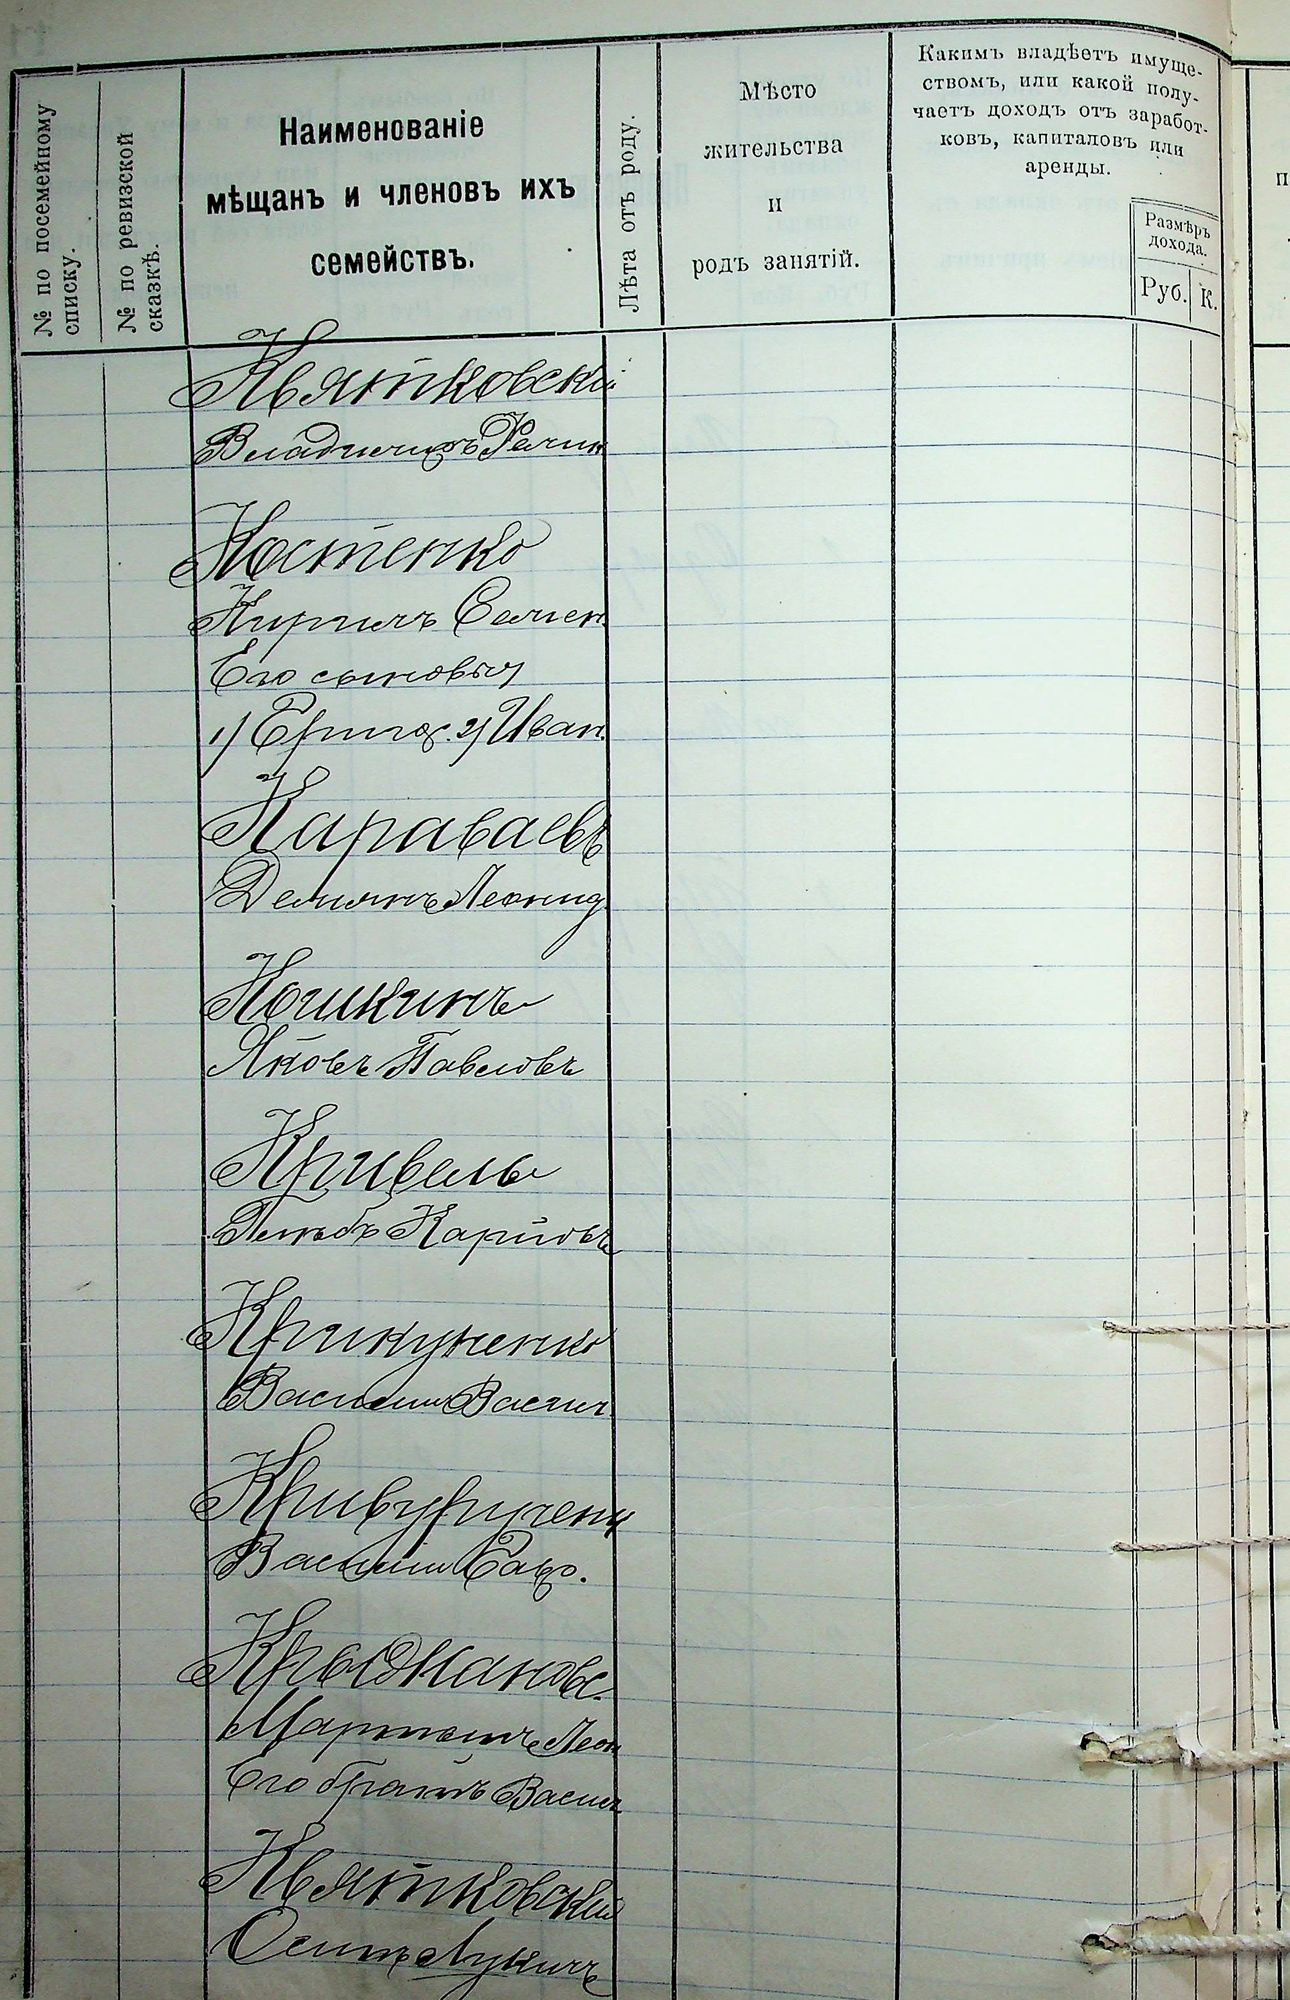 № по посемейному списку.
№ по ревизской сказкѣ.
Наименованіе
мѣщанъ и членовъ ихъ
семействъ.
Лѣта отъ роду.
Мѣсто
жительства
и
родъ занятій.
Какимъ владѣетъ имуще-
ствомъ, или какой полу-
чаетъ доходъ отъ заработ-
ковъ, капиталовъ или
аренды.
Размѣръ
дохода.
Руб. К.
Квятковскій
Владимиръ
Костенко
Кирилъ Семен.
Его сыновья
1) Григор. 2) Иван.
Караваевъ
Демьянъ Леонид.
Кошкинъ
Яковъ Павловъ
Кривель
Глѣбъ Карповъ
Крикуненко
Василій Васил.
Василій
Крыжановс.
Мартынъ Леон
Его братъ Васил
Квятковскій
Осипъ Лукичъ